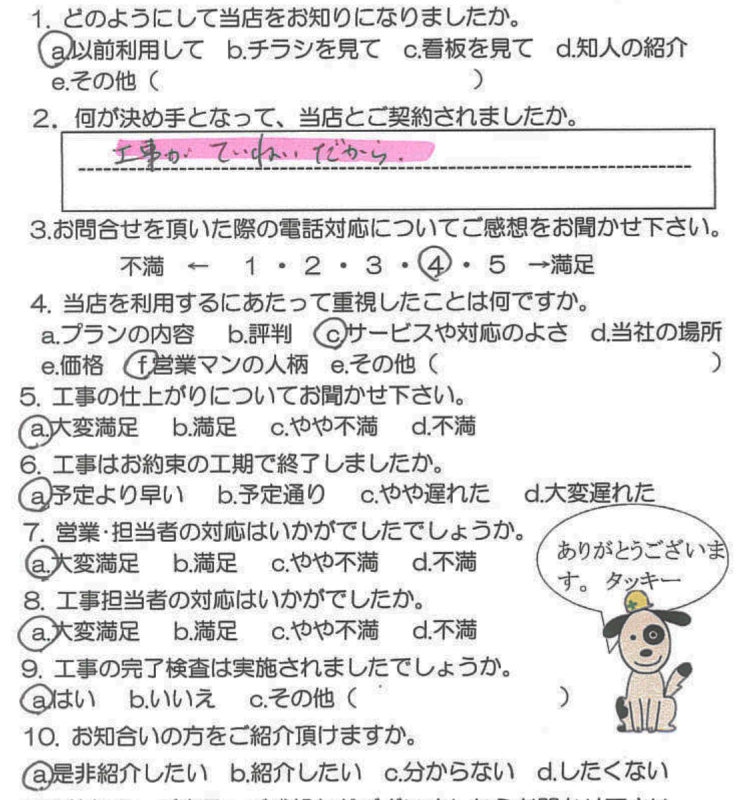 1. どのようにして当店をお知りになりましたか。
a.以前利用して b.チラシを見て c.看板を見て d.知人の紹介
e.その他（ ）
2. 何が決め手となって、当店とご契約されましたか。
工事が ていねいだから.
3.お問合せを頂いた際の電話対応についてご感想をお聞かせ下さい。
不満 ← 1・2・3・4・5 →満足
4. 当店を利用するにあたって重視したことは何ですか。
a.プランの内容 b.評判 c.サービスや対応のよさ d.当社の場所
e.価格 f.営業マンの人柄 e.その他（ ）
5. 工事の仕上がりについてお聞かせ下さい。
a.大変満足 b.満足 c.やや不満 d.不満
6. 工事はお約束の工期で終了しましたか。
a.予定より早い b.予定通り c.やや遅れた d.大変遅れた
7. 営業・担当者の対応はいかがでしたでしょうか。
a.大変満足 b.満足 c.やや不満 d.不満
ありがとうございま
す。 タッキー
8. 工事担当者の対応はいかがでしたか。
a.大変満足 b.満足 c.やや不満 d.不満
9. 工事の完了検査は実施されましたでしょうか。
a.はい b.いいえ c.その他（ ）
10. お知合いの方をご紹介頂けますか。
a.是非紹介したい b.紹介したい c.分からない d.したくない